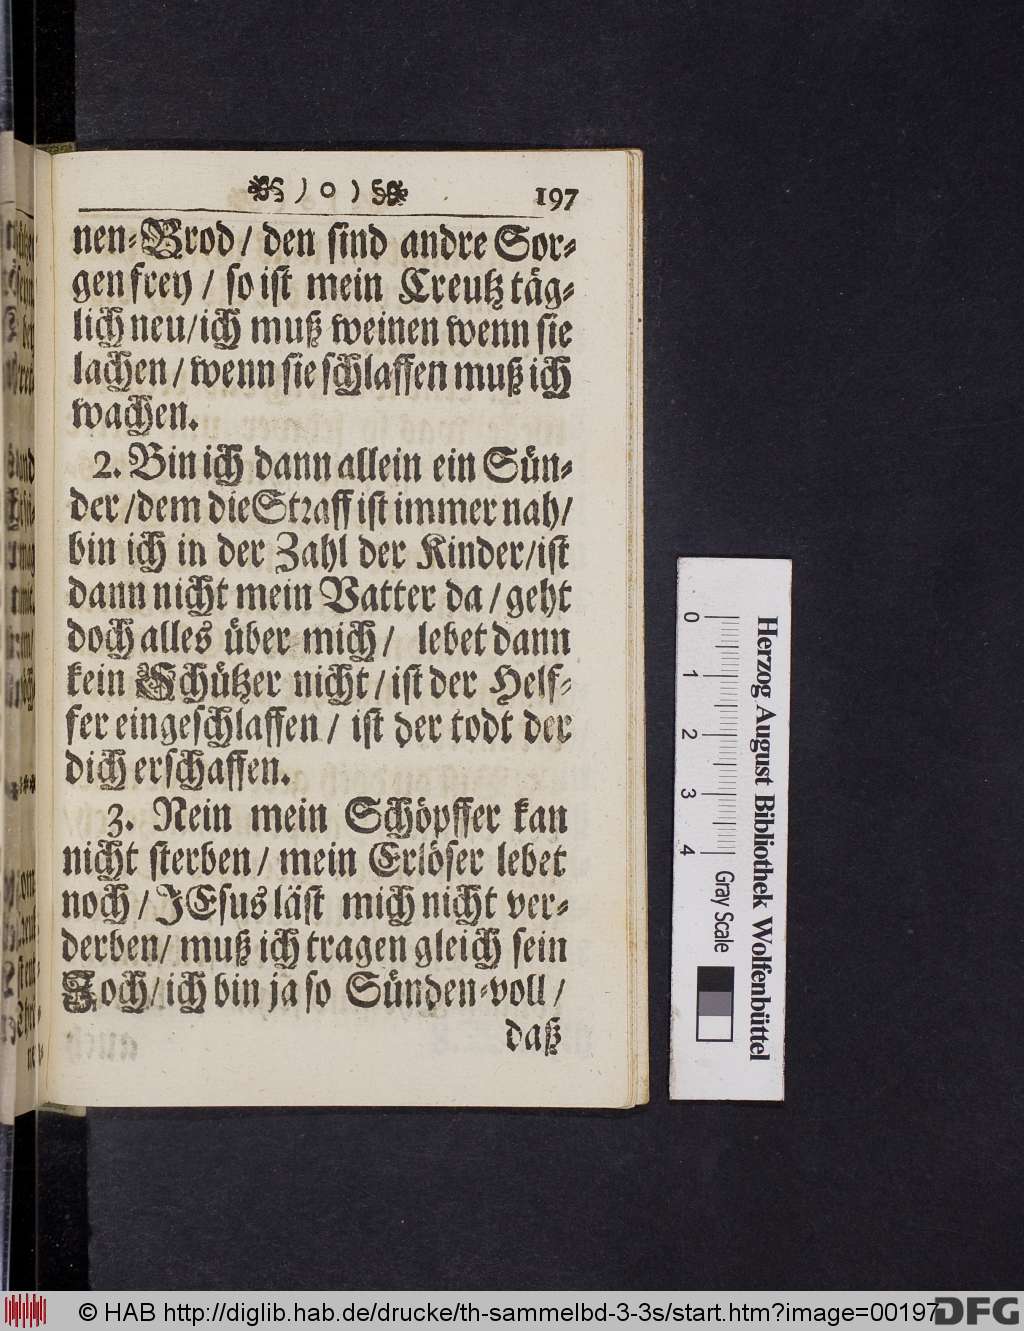 ) o ( 197
nen-Brod / den sind andre Sor-
gen frey / so ist mein Creutz täg-
lich neu/ich muß weinen wenn sie
lachen / wenn sie schlaffen muß ich
wachen.
2. Bin ich dann allein ein Sün-
der /dem die Straff ist immer nah/
bin ich in der Zahl der Kinder/ist
dann nicht mein Vatter da / geht
doch alles über mich / lebet dann
kein Schützer nicht / ist der Helf-
fer eingeschlaffen / ist der todt der
dich erschaffen.
3. Nein mein Schöpffer kan
nicht sterben / mein Erlöser lebet
noch / JEsus läst mich nicht ver-
derben/ muß ich tragen gleich sein
Joch/ ich bin ja so Sünden-voll /
daß
0 1 2 3 4 Gray Scale
Herzog August Bibliothek Wolfenbüttel
© HAB http://diglib.hab.de/drucke/th-sammelbd-3-3s/start.htm?image=00197
DFG